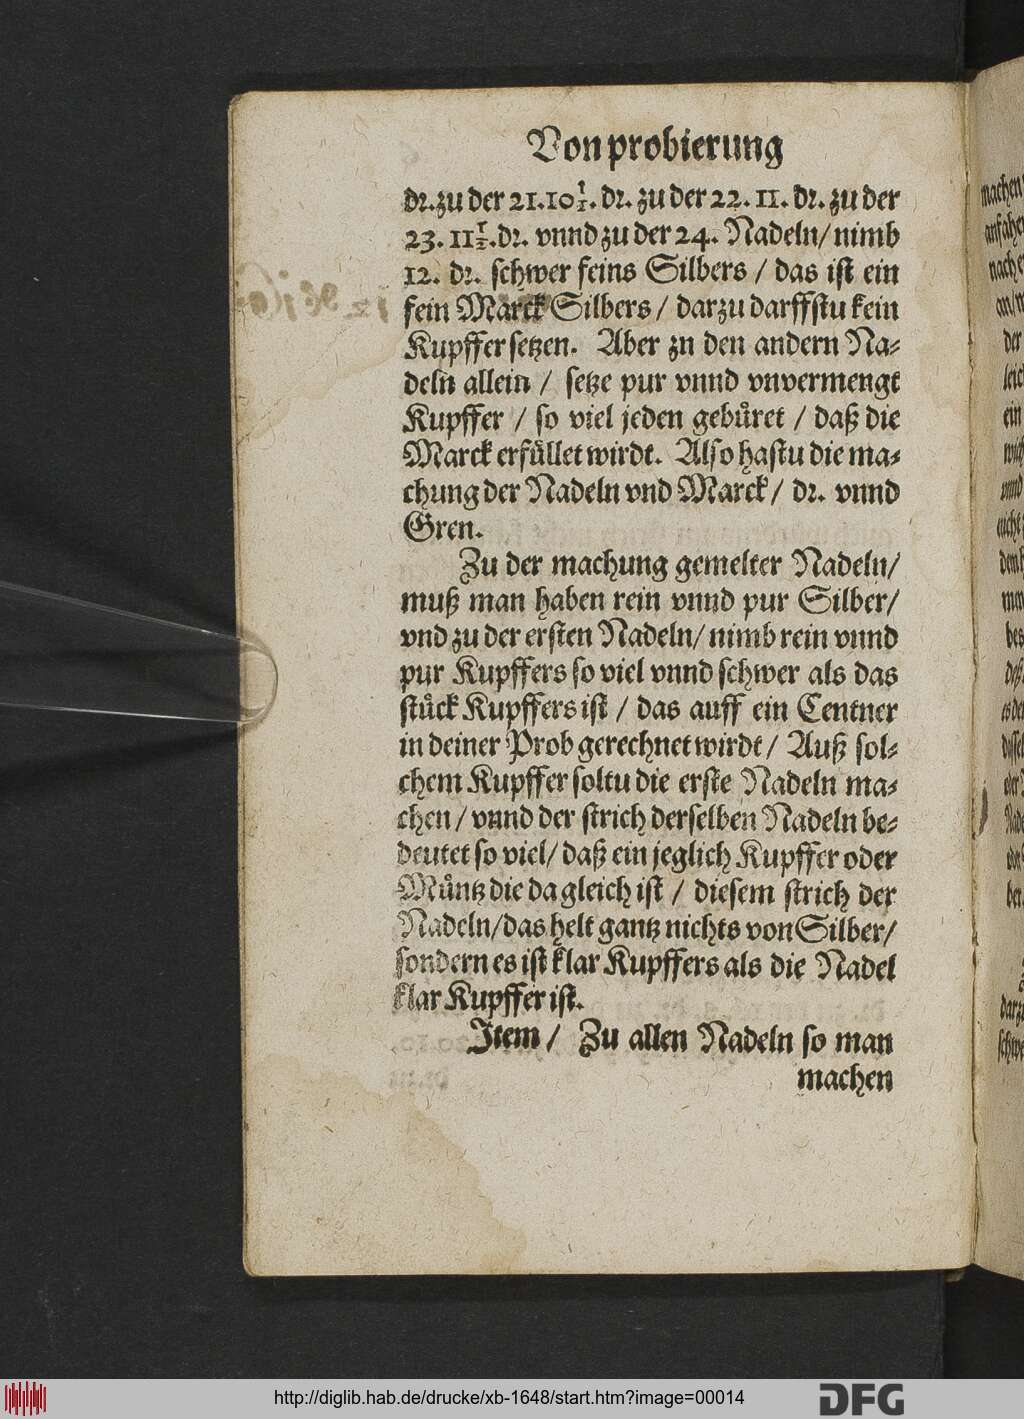 Von probierung
dr. zu der 21. 10 1/2. dr. zu der 22. 11. dr. zu der
23. 11 1/2. dr. vnnd zu der 24. Nadeln / nimb
12. dr. schwer feins Silbers / das ist ein
fein Marck Silbers / darzu darffstu kein
Kupffer setzen. Aber zn den andern Na⸗
deln allein / setze pur vnnd vnvermengt
Kupffer / so viel jeden gebuͤret / daß die
Marck erfuͤllet wirdt. Also hastu die ma⸗
chung der Nadeln vnd Marck / dr. vnnd
Gren.
Zu der machung gemelter Nadeln /
muß man haben rein vnnd pur Silber /
vnd zu der ersten Nadeln / nimb rein vnnd
pur Kupffers so viel vnnd schwer als das
stuͤck Kupffers ist / das auff ein Centner
in deiner Prob gerechnet wirdt / Auß sol⸗
chem Kupffer soltu die erste Nadeln ma⸗
chen / vnnd der strich derselben Nadeln be⸗
deutet so viel / daß ein jeglich Kupffer oder
Muͤntz die da gleich ist / diesem strich der
Nadeln / das helt gantz nichts von Silber /
sondern es ist klar Kupffers als die Nadel
klar Kupffer ist.
Item / Zu allen Nadeln so man
machen
http://diglib.hab.de/drucke/xb-1648/start.htm?image=00014
DFG